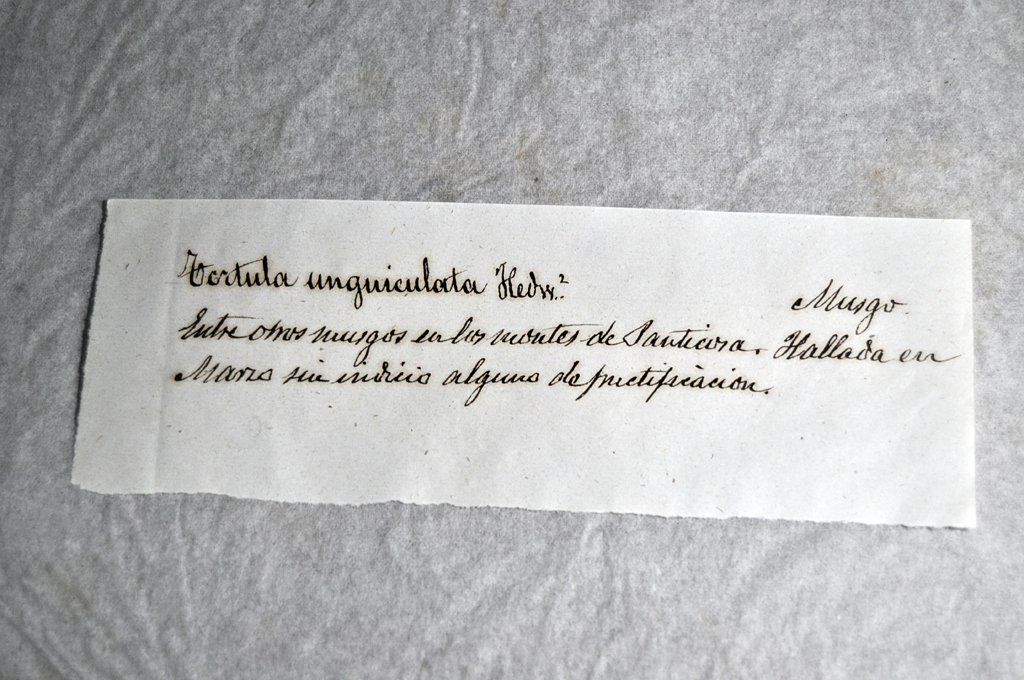 Tortula unguiculata Hedw.?
Musgo.
Entre otros musgos en los montes de Panticosa. Hallada en
Marzo sin indicio alguno de fructificacion.